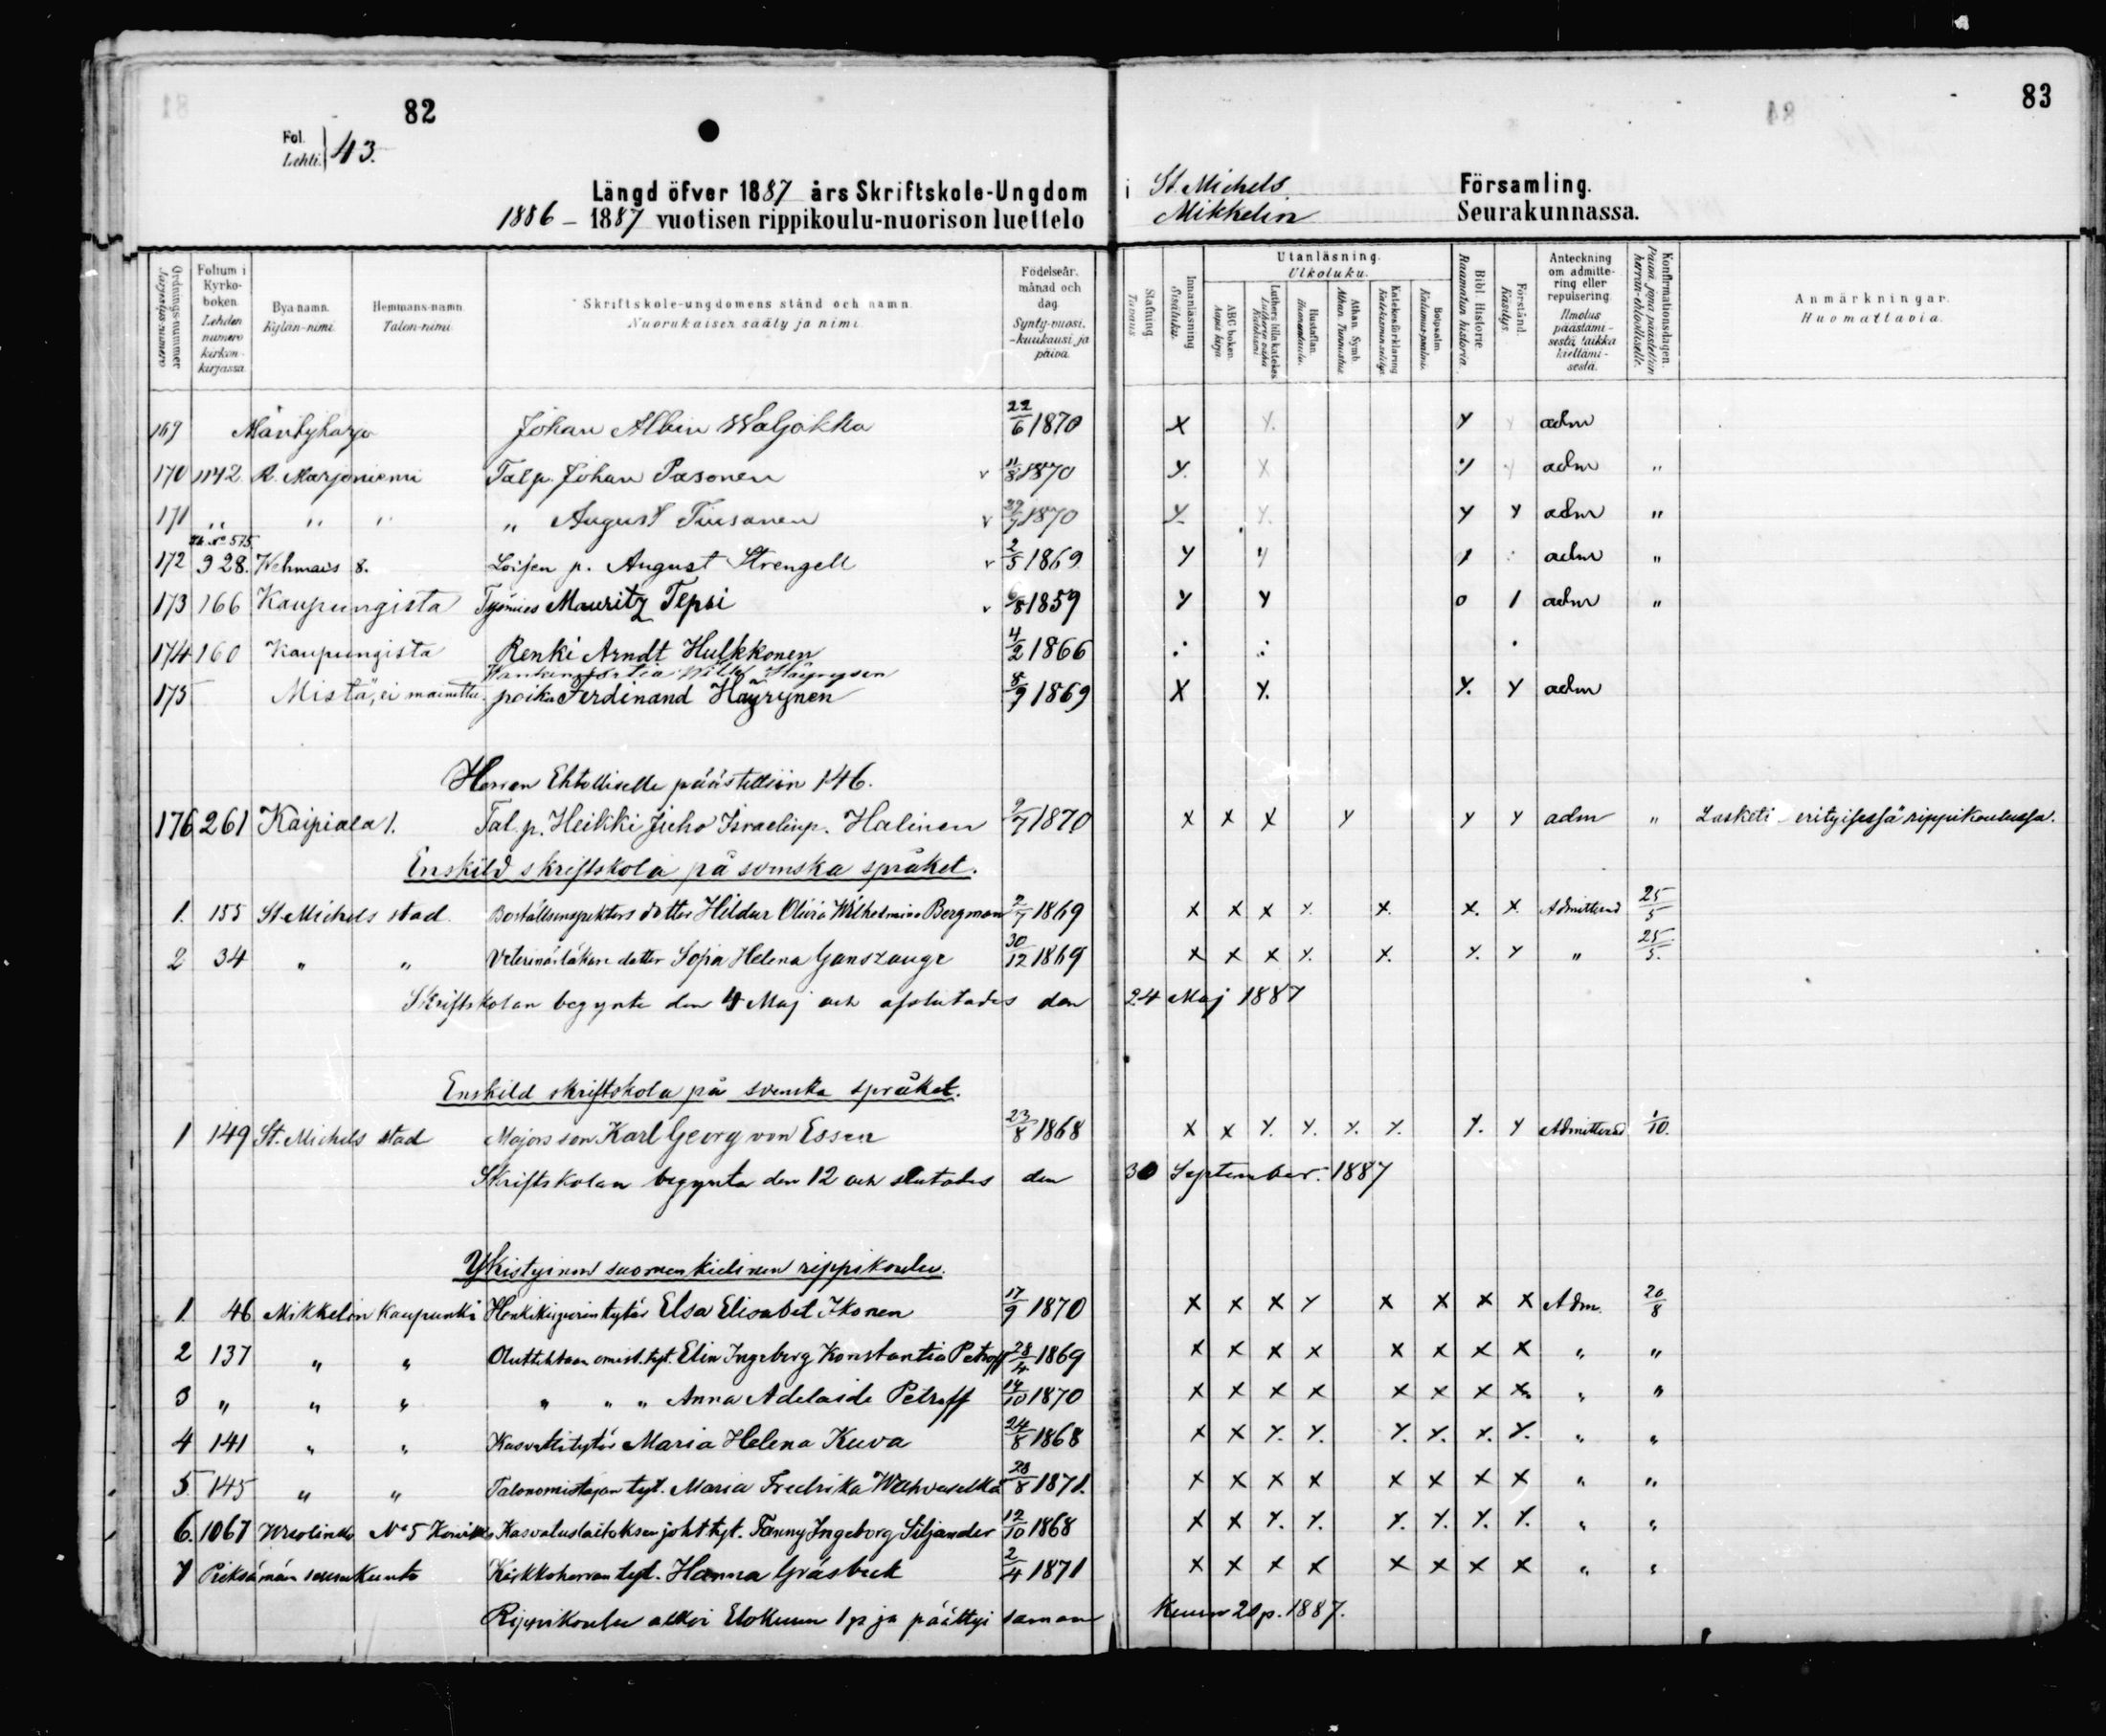 82
83
Fol.
Lehti. 43.
Längd öfver 1887 års Skriftskole-Ungdom i St. Michels Församling.
1886–1887 vuotisen rippikoulu-nuorison luettelo Mikkelin Seurakunnassa.
Ordnings-nummer Järjestys-numero
Folium i Kyrko-boken. Lehden numero kirkon-kirjassa.
Bya-namn. Kylän-nimi.
Hemmans-namn. Talon-nimi.
Skriftskole-ungdomens stånd och namn. Nuorukaisen sääty ja nimi.
Födelseår, månad och dag. Synty-vuosi, -kuukausi ja päivä.
Stafning. Tavaus.
Innanläsning. Sisäluku.
Utanläsning. Ulkoluku.
ABC boken. Aapis kirja.
Luthers lilla katekes. Lutherin vähä Katekismi.
Hustaflan. Huoneentaulu.
Athan. Symb. Athan. Tunnustus.
Katekesförklaring. Katekismuksen selitys.
Botpsalm. Katumus-psalmi.
Bibl. Historie. Raamatun historia.
Förstånd. Käsitys.
Anteckning om admittering eller repulsering. Ilmoitus päästämisestä taikka kieltämisestä.
Konfirmationsdagen. Päivä, jona päästettiin herran-ehtoolliselle.
Anmärkningar. Huomattavia.
169 Mäntyharju Johan Albin Waljakka 22/6 1870 x y. y y adm
170 1142 R. Marjoniemi Talp. Johan Pasonen v 11/8 1870 y. x y y adm "
171 " " " " August Tiusanen v 29/7 1870 y. y. y y adm "
172 928. Wehmais 8. Loisen p. August Strengell v 2/5 1869 y y 1 adm "
173 166 Kaupungista Työmies Mauritz Teppi v 6/8 1859 y y o 1 adm "
174 160 Kaupungista Renki Arndt Hulkkonen 4/2 1866
175 Mistä, ei mainittu. poika Ferdinand Häyrynen 8/9 1869 x y. y. y adm
Herran Ehtolliselle päästettiin 146.
176 261 Kaipiala 1. Tal. p. Heikki Juho Israelinp. Halinen 9/7 1870 x x x y y y adm " Laskettu erityisessä rippikoulussa.
Enskild skriftskola på svenska språket.
1. 155 St. Michels stad. Boställsinspektors dotter Hildur Olivia Wilhelmina Bergman 2/7 1869 x x x y. x. x. x. Admitterad 25/5
2 34 " " Veterinärläkare dotter Sofia Helena Ganszauge 30/12 1869 x x x y. x. y. y " 25/5.
Skriftskolan begynte den 4 Maj och afslutades den 24 Maj 1887
Enskild skriftskola på svenska språket.
1 149 St. Michels stad Majors son Karl Georg von Essen 23/8 1868 x x y. y. y. y. y. y Admitterad 1/10.
Skriftskolan begynte den 12 och slutades den 30 September 1887
Yksityinen suomenkielinen rippikoulu.
1. 46 Mikkelin Kaupunki Henkikirjurin tytär Elsa Elisabet Ikonen 17/9 1870 x x x y x x x x Adm. 20/8
2 137 " " Oluttehtaan omist. tyt. Elin Ingeborg Konstantia Petroff 28/4 1869 x x x x x x x x " "
3 " " " " " " Anna Adelaide Petroff 14/10 1870 x x x x x x x x. " "
4 141 " " Kasvattitytär Maria Helena Kuva 24/8 1868 x x y. y. y. y. x. y. " "
5. 145 " " Talonomistajan tyt. Maria Fredrika Wehvaselkä 28/8 1871. x x x x x x x x " "
6. 1067 No 5 Kasvatuslaitoksen joht. tyt. Fanny Ingeborg Siljander 12/10 1868 x x y. y. y. y. y. y. " "
7 Pieksämän seurakunta Kirkkoherran tyt. Hanna Gräsbeck 2/4 1871 x x x x x x x x " "
Rippikoulu alkoi Elokuun 1 p ja päättyi saman Kuun 20 p. 1887.